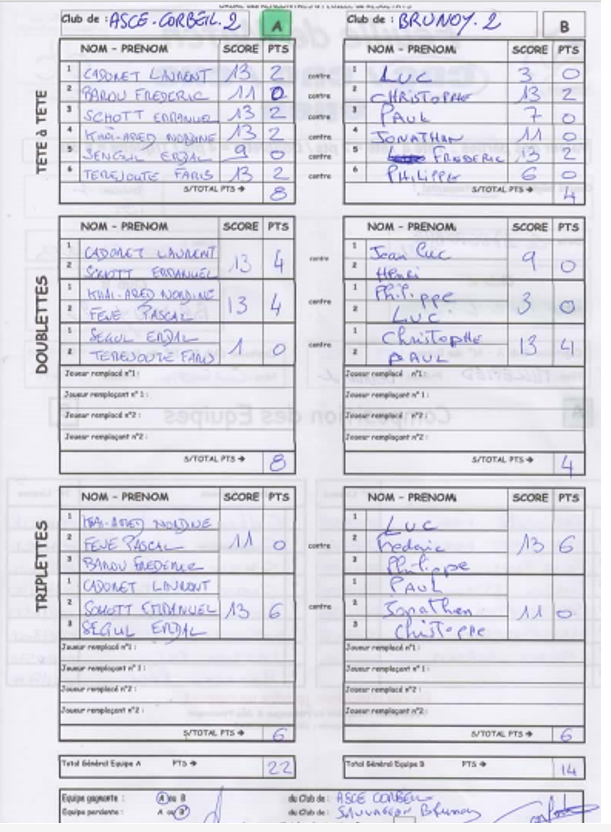 Club de : ASCE-CORBEIL.2 A Club de : BRUNOY.2 B
TETE à TETE
NOM - PRENOM SCORE PTS NOM - PRENOM SCORE PTS
1 CADORET LAURENT 13 2 contre 1 LUC 3 0
2 BAROU FREDERIC 11 0 contre 2 CHRISTOPHE 13 2
3 SCHOTT EMMANUEL 13 2 contre 3 PAUL 7 0
4 KHAI-ARED NORDINE 13 2 contre 4 JONATHAN 11 0
5 SENGUL ERDAL 9 0 contre 5 FREDERIC 13 2
6 TEREJOUTE FARIS 13 2 contre 6 PHILIPPE 6 0
S/TOTAL PTS → 8 S/TOTAL PTS → 4
DOUBLETTES
NOM - PRENOM SCORE PTS NOM - PRENOM SCORE PTS
1 CADORET LAURENT 1 Jean Luc
13 4 contre 9 0
2 SCHOTT EMMANUEL 2 Henri
1 KHAI-ARED NORDINE 1 Philippe
13 4 contre 3 0
2 FEVE PASCAL 2 LUC
1 SEGUL ERDAL 1 Christophe
1 0 contre 13 4
2 TEREJOUTE FARIS 2 PAUL
Joueur remplacé n°1 : Joueur remplacé n°1 :
Joueur remplaçant n° 1 : Joueur remplaçant n°1 :
Joueur remplacé n°2 : Joueur remplacé n°2 :
Joueur remplaçant n°2 : Joueur remplaçant n°2 :
S/TOTAL PTS → 8 S/TOTAL PTS → 4
TRIPLETTES
NOM - PRENOM SCORE PTS NOM - PRENOM SCORE PTS
1 KHAI-ARED NORDINE 1 LUC
2 FEVE PASCAL 11 0 contre 2 Frederic 13 6
3 BAROU FREDERIC 3 Philippe
1 CADORET LAURENT 1 PAUL
2 SCHOTT EMMANUEL 13 6 contre 2 Jonathan 11 0
3 SEGUL ERDAL 3 Christophe
Joueur remplacé n°1 : Joueur remplacé n°1 :
Joueur remplaçant n° 1 : Joueur remplaçant n°1 :
Joueur remplacé n°2 : Joueur remplacé n°2 :
Joueur remplaçant n°2 : Joueur remplaçant n°2 :
S/TOTAL PTS → 6 S/TOTAL PTS → 6
Total Général Equipe A PTS → 22 Total Général Equipe B PTS → 14
Equipe gagnante : A ou B du Club de : ASCE CORBEIL
Equipe perdante : A ou B du Club de : Brunoy